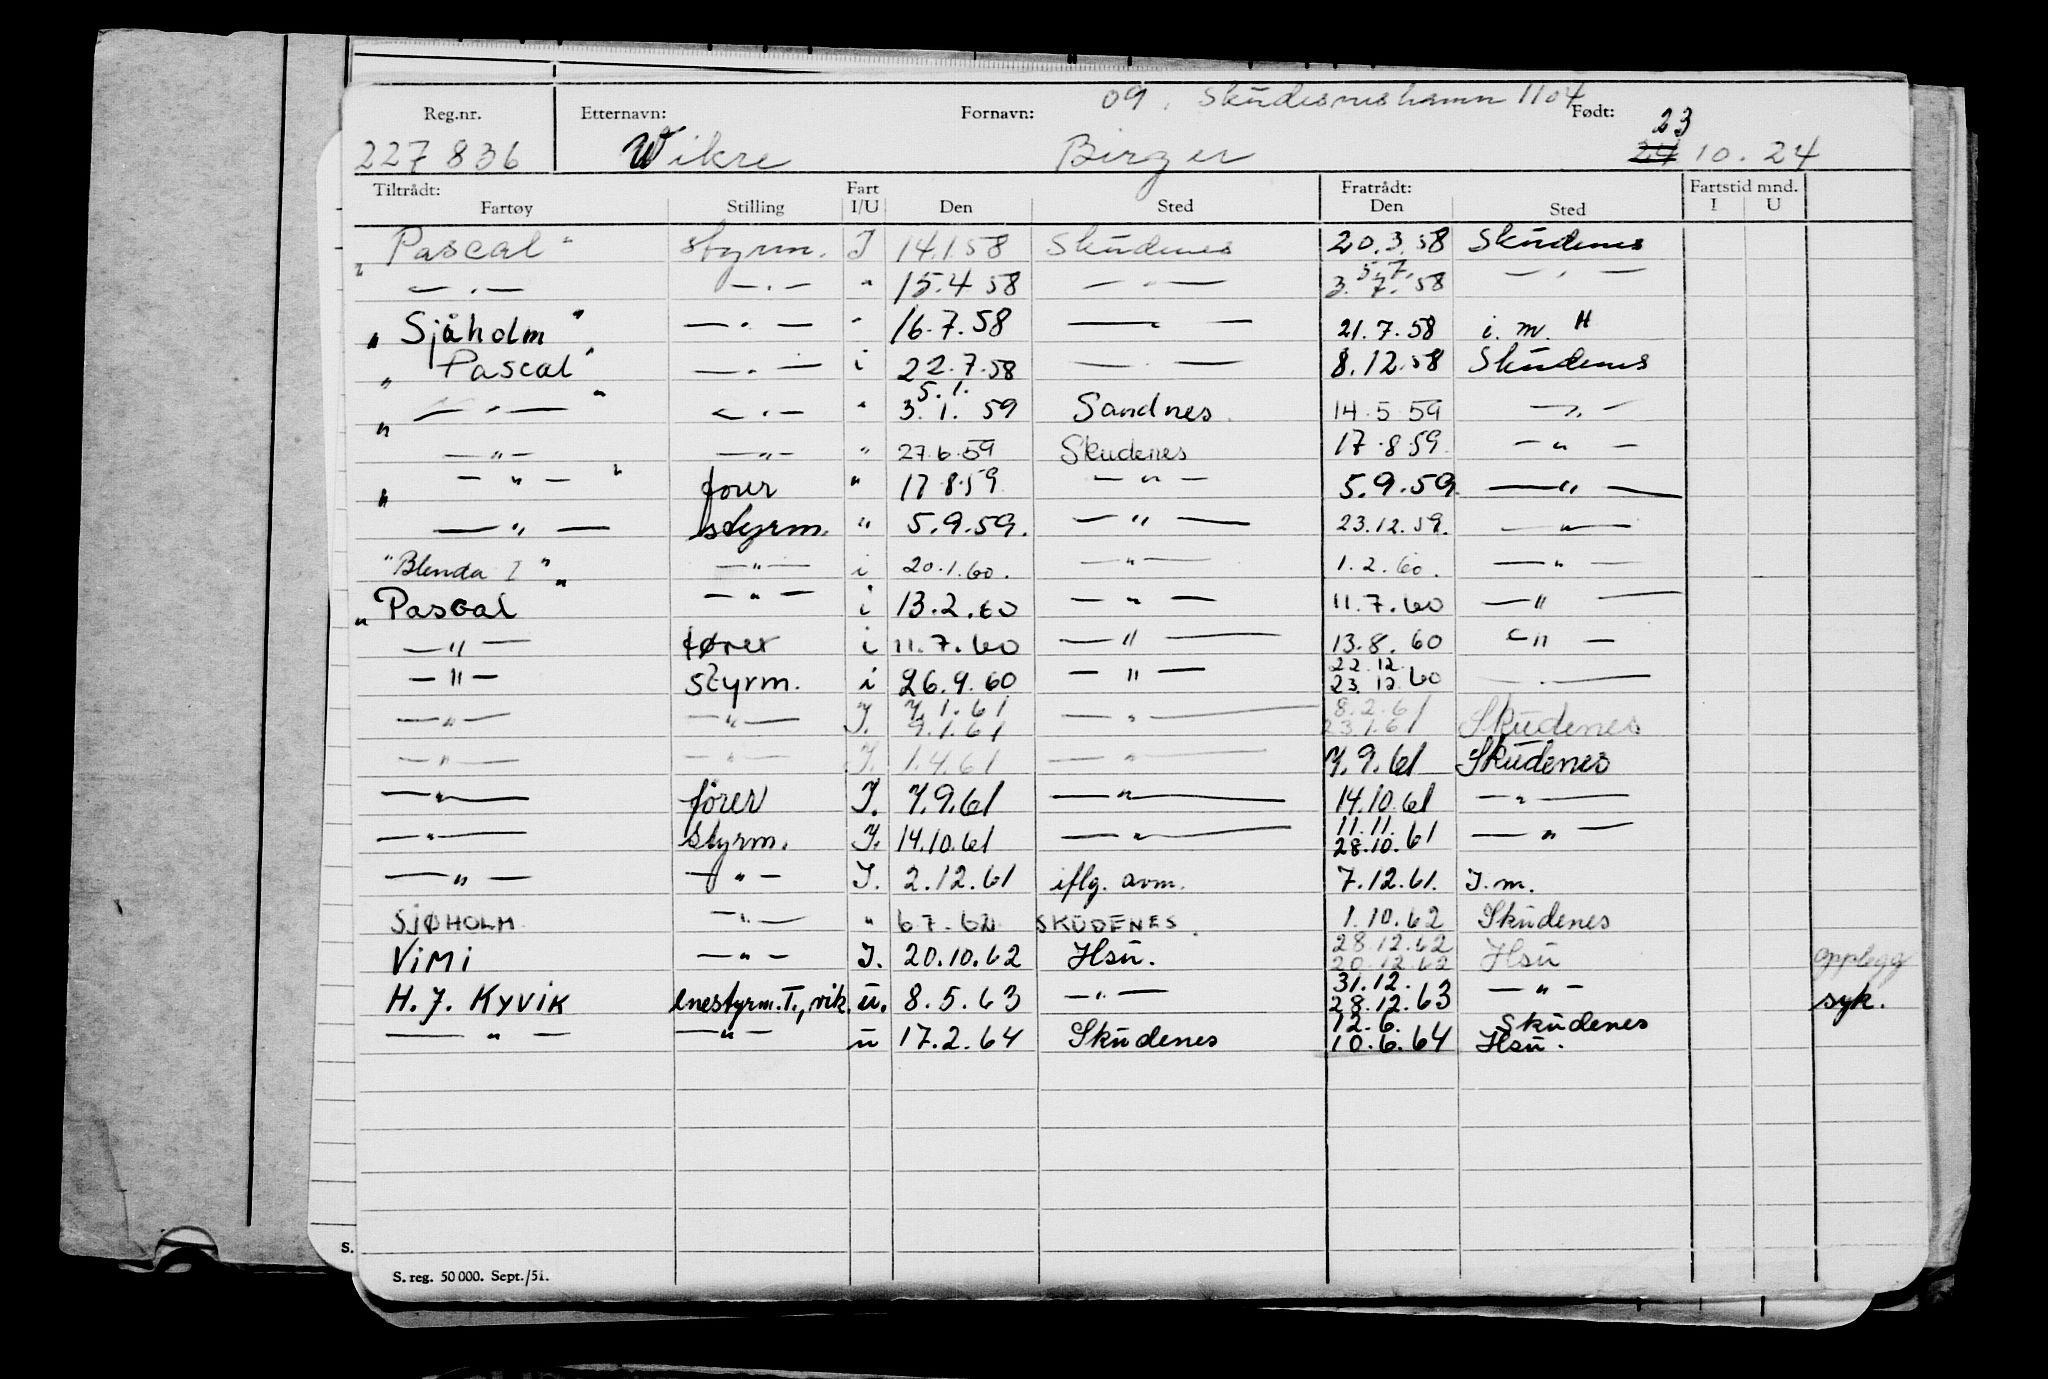 09. Skudesneshamn 1104
Reg.nr. Etternavn: Fornavn: Født:
23
227836 Wikre Birger 24 10.24
Tiltrådt: Fart Fratrådt: Fartstid mnd.
Fartøy Stilling I/U Den Sted Den Sted I U
"Pascal" styrm. I 14.1.58 Skudenes 20.3.58 Skudenes
5.7.
— " — — " — " 15.4 58 — " — 3.7.58 — " —
"Sjåholm" — " — " 16.7.58 — " — 21.7.58 i. m. H
"Pascal" — " — i 22.7.58 — " — 8.12.58 Skudenes
5.1.
" — " — " — " — " 3.1.59 Sandnes 14.5 59 — " —
— " — — " — " 27.6.59 Skudenes 17.8.59 — " —
" — " — " fører " 17 8.59 — " — 5.9.59. — " —
— " — styrm. " 5.9.59. — " — 23.12.59. — " —
"Blenda I" — " — i 20.1.60. — " — 1.2.60. — " —
"Pascal" — " — i 13.2.60 — " — 11.7.60 — " —
— " — fører i 11.7.60 — " — 13.8.60 — " —
22.12.
— " — styrm. i 26.9.60 — " — 23.12.60 — " —
7.1.61 8.2.61
— " — — " — I. 9.1.61 — " — 23.1.61 Skudenes
— " — — " — I. 1.4.61 — " — 7.9.61 Skudenes
— " — fører I. 7.9.61 — " — 14.10.61 — " —
11.11.
— " — styrm. I. 14.10.61 — " — 28.10.61 — " —
— " — — " — I. 2.12.61 iflg. avm. 7.12.61. I.m.
SJØHOLM — " — " 6 7.62 SKUDENES. 1.10.62 Skudenes
28.12.62
ViMi — " — I. 20.10.62 Hsu. 20.12.62 Hsu opplegg
31.12.
H. J. KYVIK enestyrm.T., vik. u. 8.5.63 — " — 28.12.63 — " — syk.
12.6. Skudenes
— " — — " — u 17.2.64 Skudenes 10.6.64 Hsu.
S.
S. reg. 50 000. Sept./51.